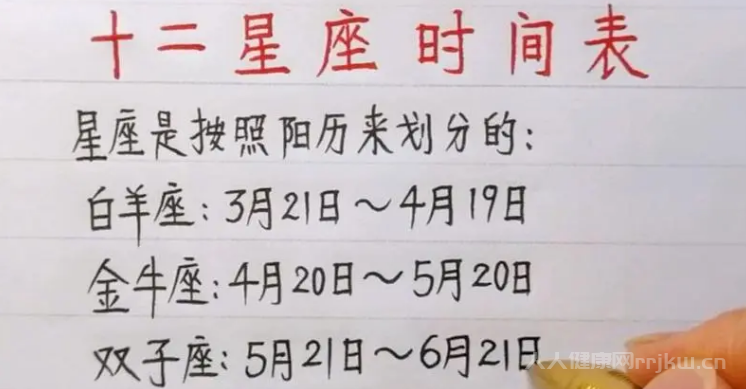 十二星座时间表
星座是按照阳历来划分的:
白羊座:3月21日~4月19日
金牛座:4月20日~5月20日
双子座:5月21日~6月21日
人人健康网rrjkw.cn